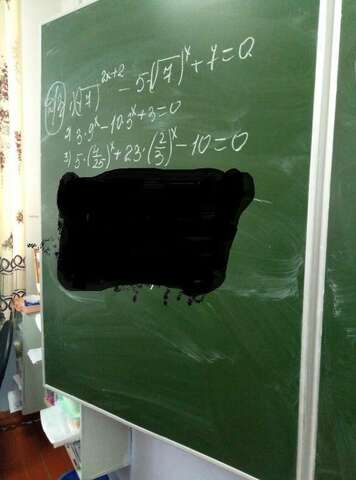 1) (√7)^{2x+2} - 5·(√7)^x + 7 = 0
2) 3·9^x - 10·3^x + 3 = 0
3) 5·(4/25)^x + 23·(2/5)^x - 10 = 0